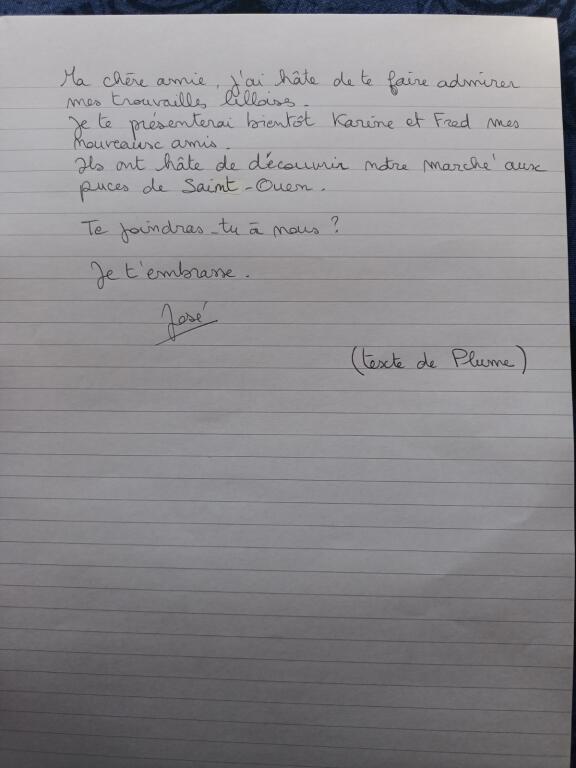 Ma chère amie, j'ai hâte de te faire admirer
mes trouvailles lilloises.
Je te présenterai bientôt Karine et Fred mes
nouveaux amis.
Ils ont hâte de découvrir notre marché aux
puces de Saint-Ouen.
Te joindras-tu à nous ?
Je t'embrasse.
José
(texte de Plume)